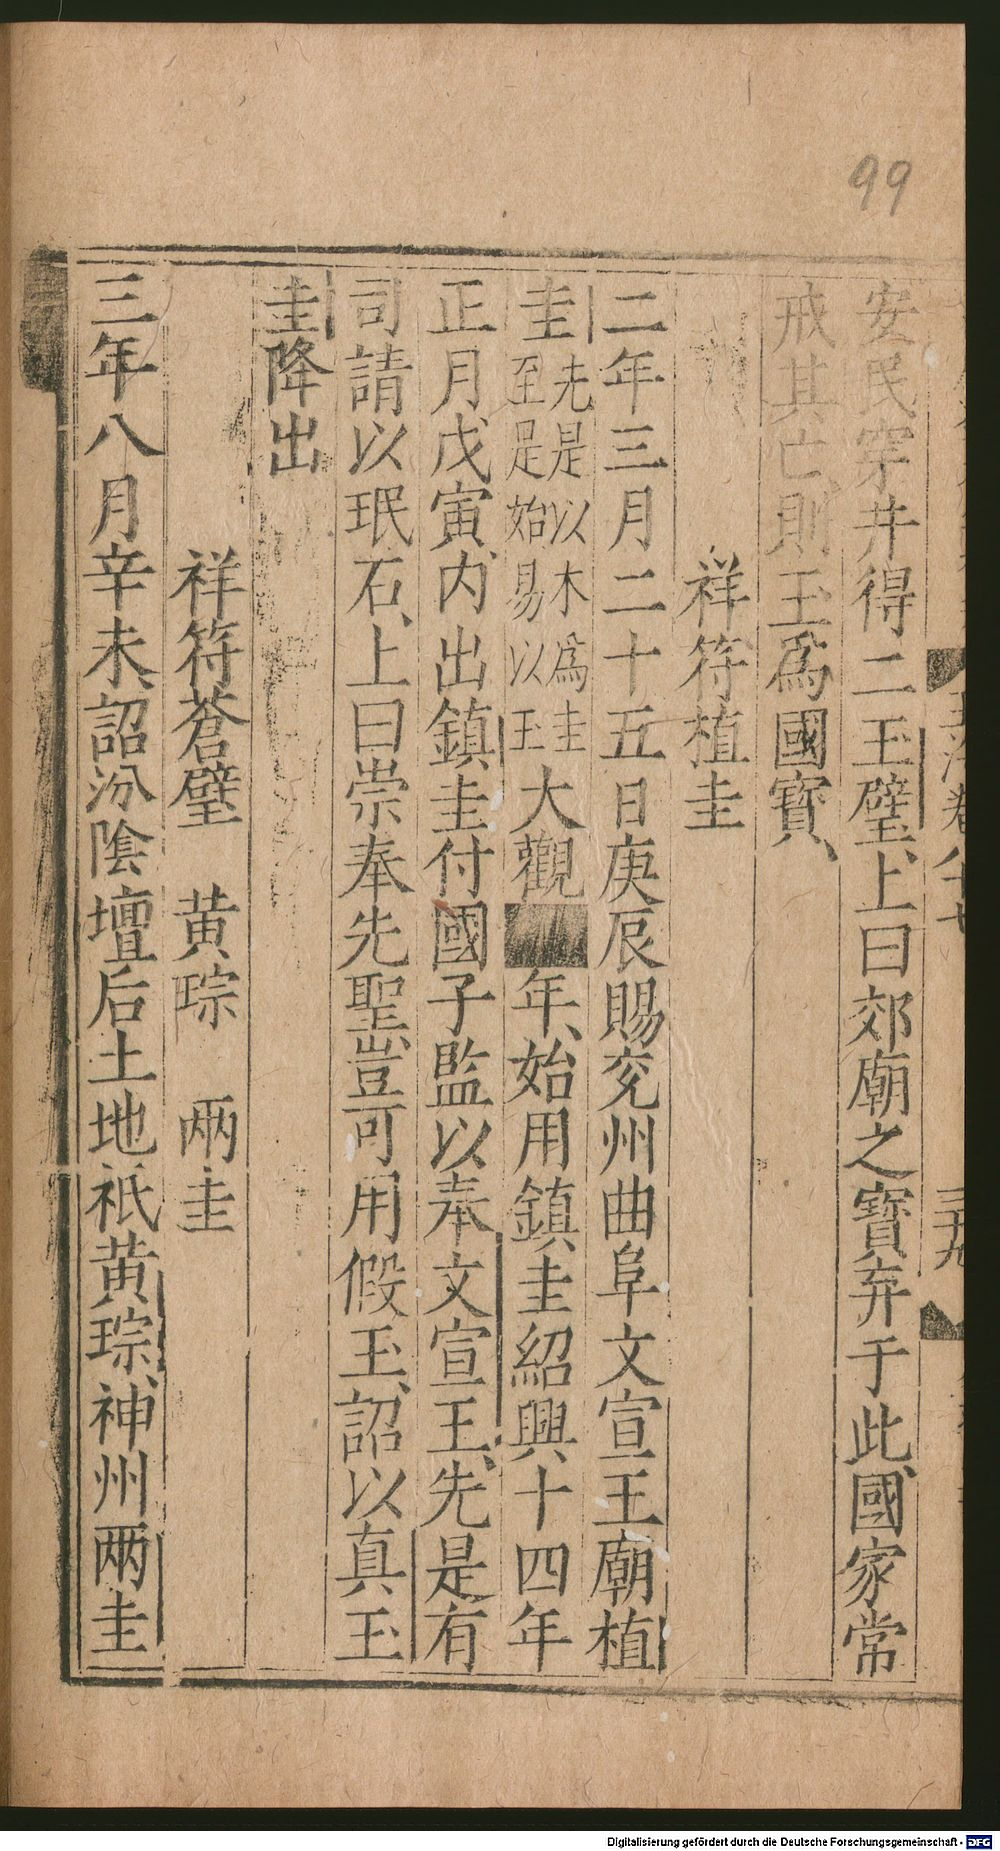 99
玉海卷八十七
三十九
安民穿井得二玉璧、上曰郊廟之寶弃于此、國家常
戒其亡、則玉爲國寶、
祥符植圭
二年三月二十五日庚辰賜兖州曲阜文宣王廟植
圭先是以木爲圭至是始易以玉大觀年、始用鎮圭紹興十四年
正月戊寅、内出鎮圭付國子監以奉文宣王、先是有
司請以珉石、上曰崇奉先聖、豈可用假玉、詔以真玉
圭降出
祥符蒼璧 黄琮 兩圭
三年八月辛未、詔汾陰壇后土地祇黄琮、神州兩圭
Digitalisierung gefördert durch die Deutsche Forschungsgemeinschaft - DFG